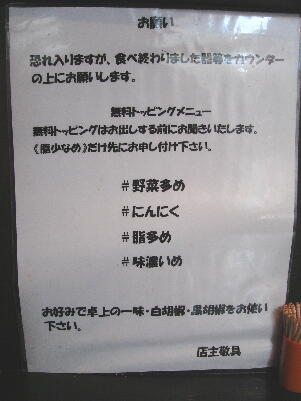 お願い
恐れ入りますが、食べ終わりました器等をカウンター
の上にお願いします。
無料トッピングメニュー
無料トッピングはお出しする前にお聞きいたします。
《脂少なめ》だけ先にお申し付け下さい。
#野菜多め
#にんにく
#脂多め
#味濃いめ
お好みで卓上の一味・白胡椒・黒胡椒をお使い
下さい。
店主敬具